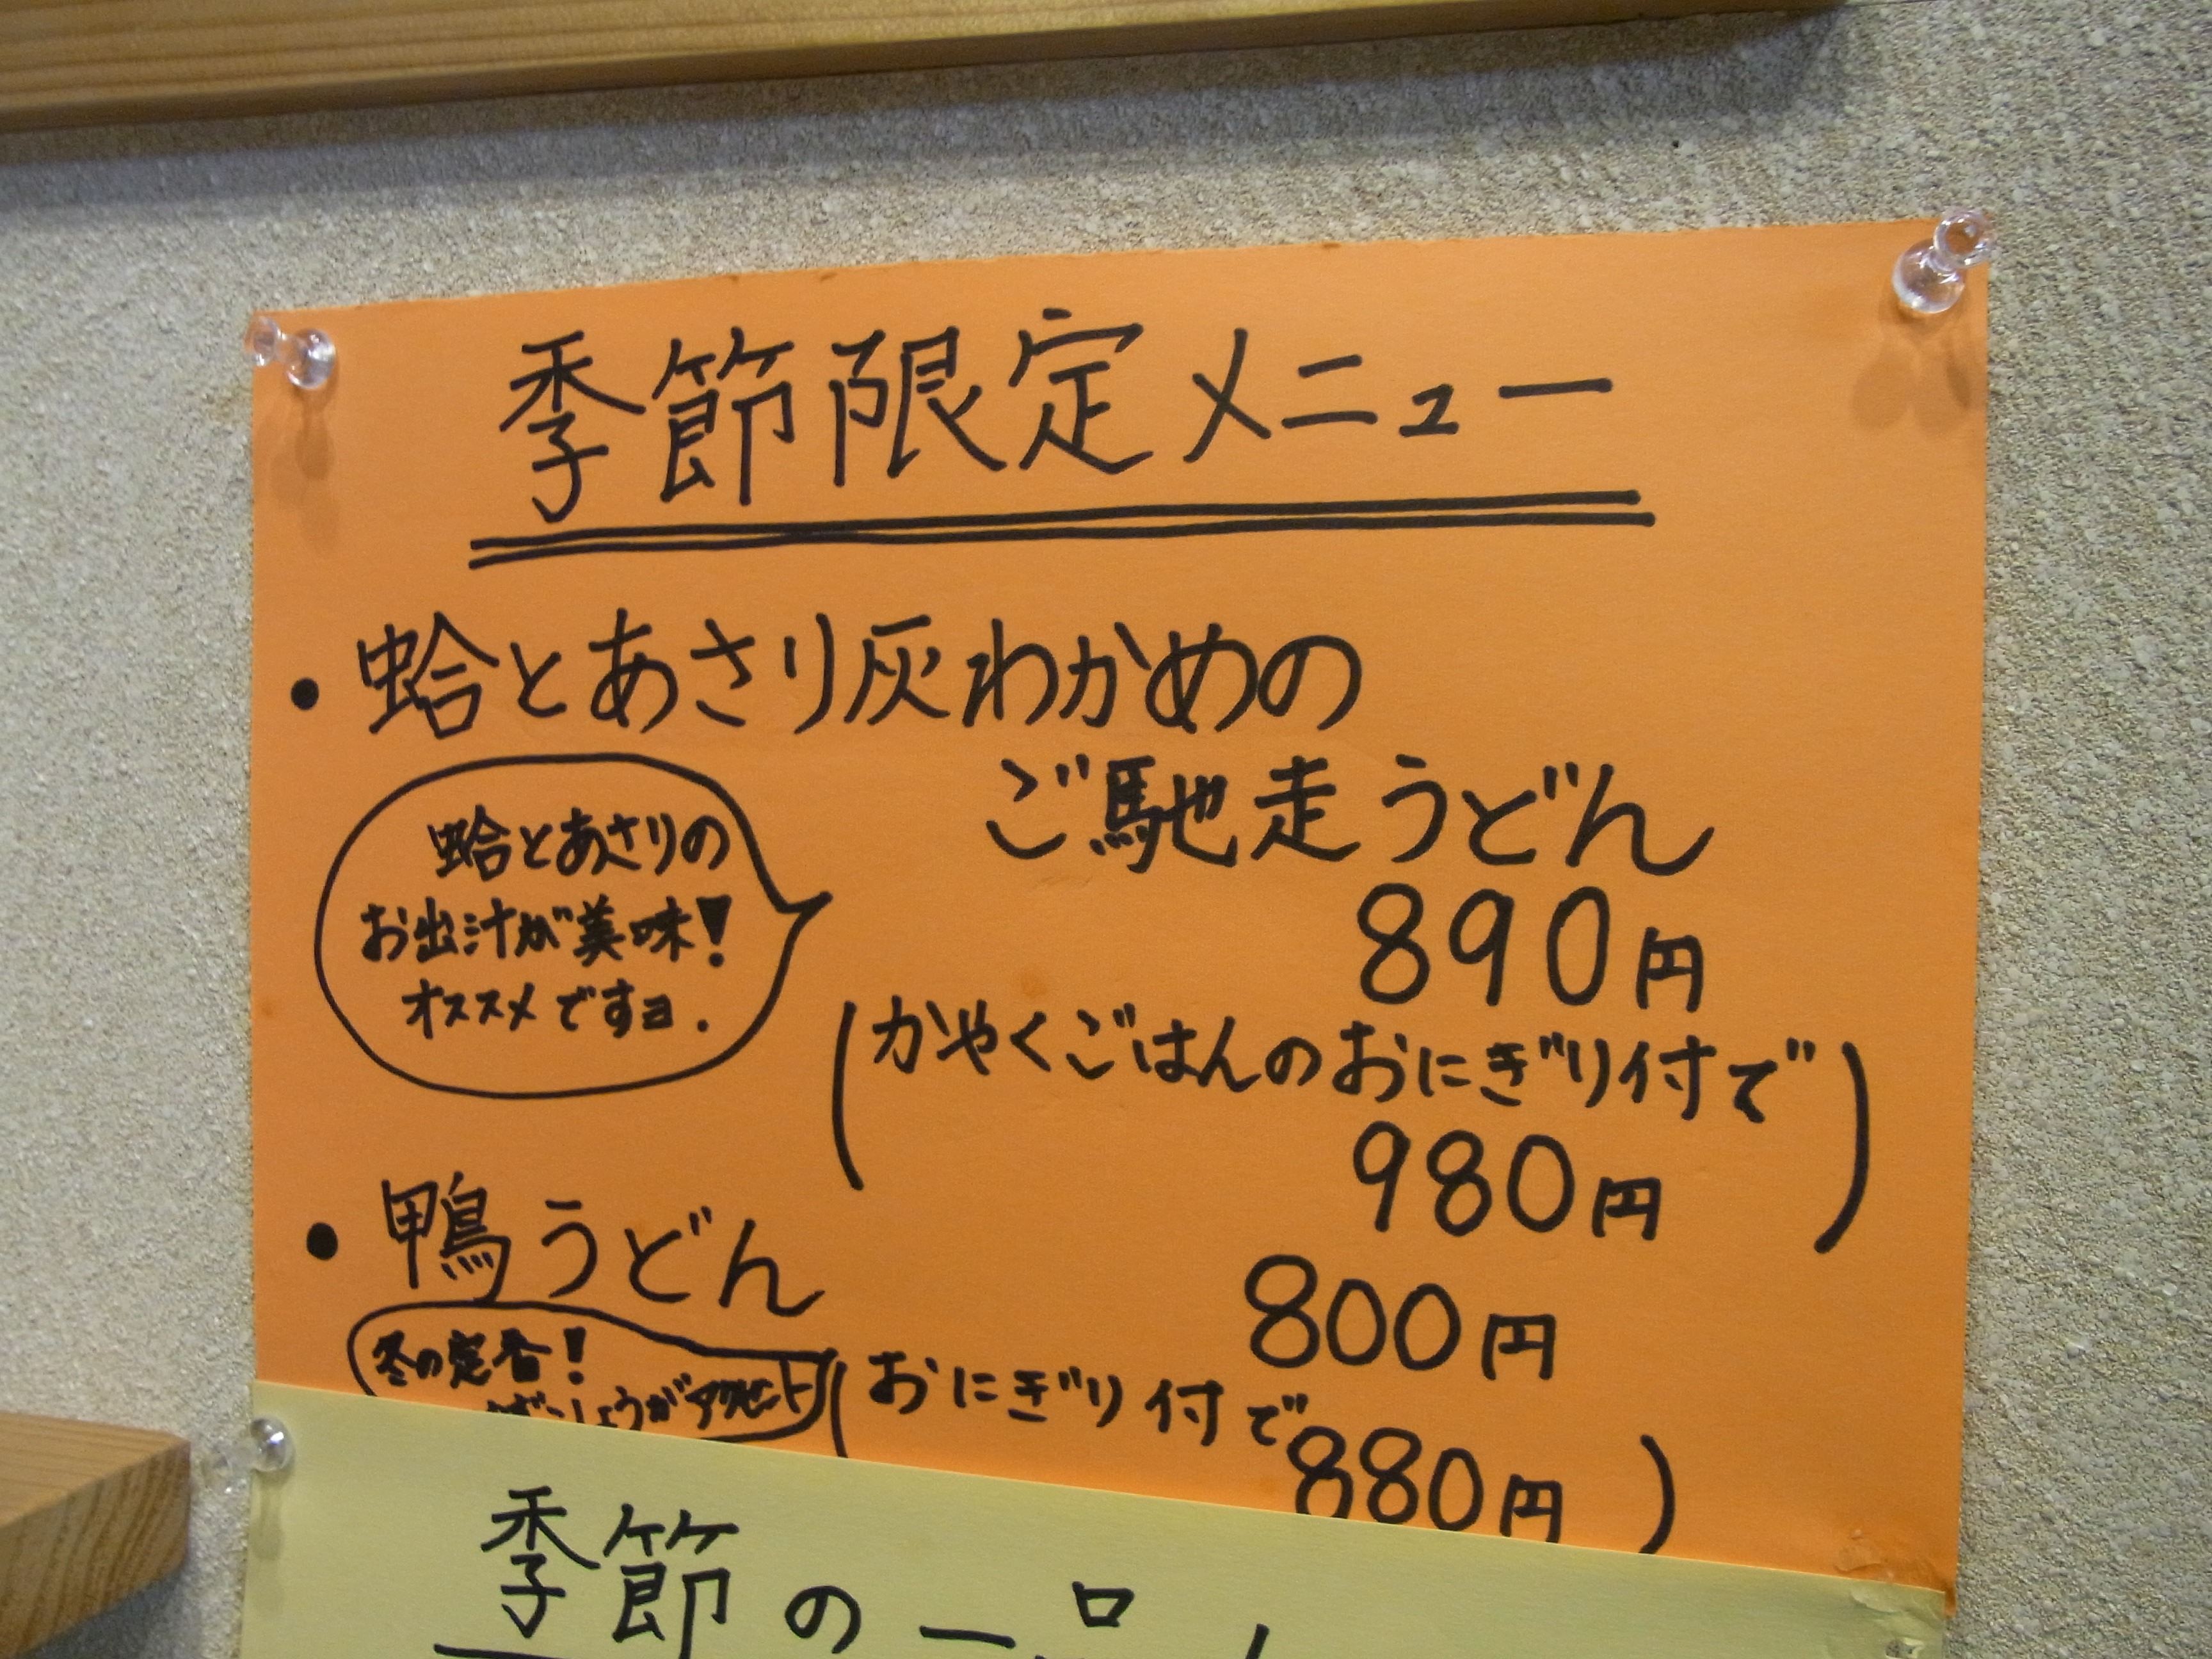 季節限定メニュー
・蛤とあさり灰わかめの
ご馳走うどん
890円
蛤とあさりの
お出汁が美味!
オススメですヨ.
(かやくごはんのおにぎり付で
980円)
・鴨うどん
800円
冬の定番!
しょうがアクセント
(おにぎり付で
880円)
季節の一品